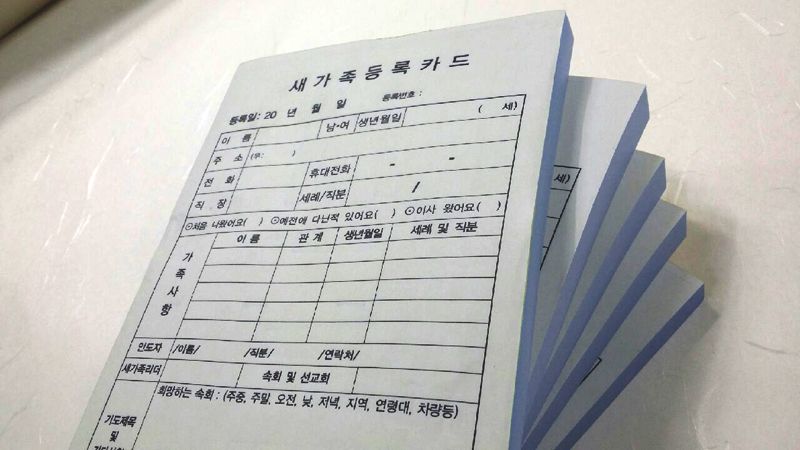 새가족등록카드
등록일: 20 년 월 일 등록번호 :
이 름 남·여 생년월일 ( 세)
주 소 (우: )
전 화 휴대전화 - -
직 장 세례/직분 /
⊙처음 나왔어요( ) ⊙예전에 다닌적 있어요( ) ⊙이사 왔어요( )
가족사항 이 름 관 계 생년월일 세례 및 직분
인도자 /이름/ /직분/ /연락처/
새가족리더 속회 및 선교회
희망하는 속회 : (주중, 주말, 오전, 낮, 저녁, 지역, 연령대, 차량등)
기도제목
및
세)
세)